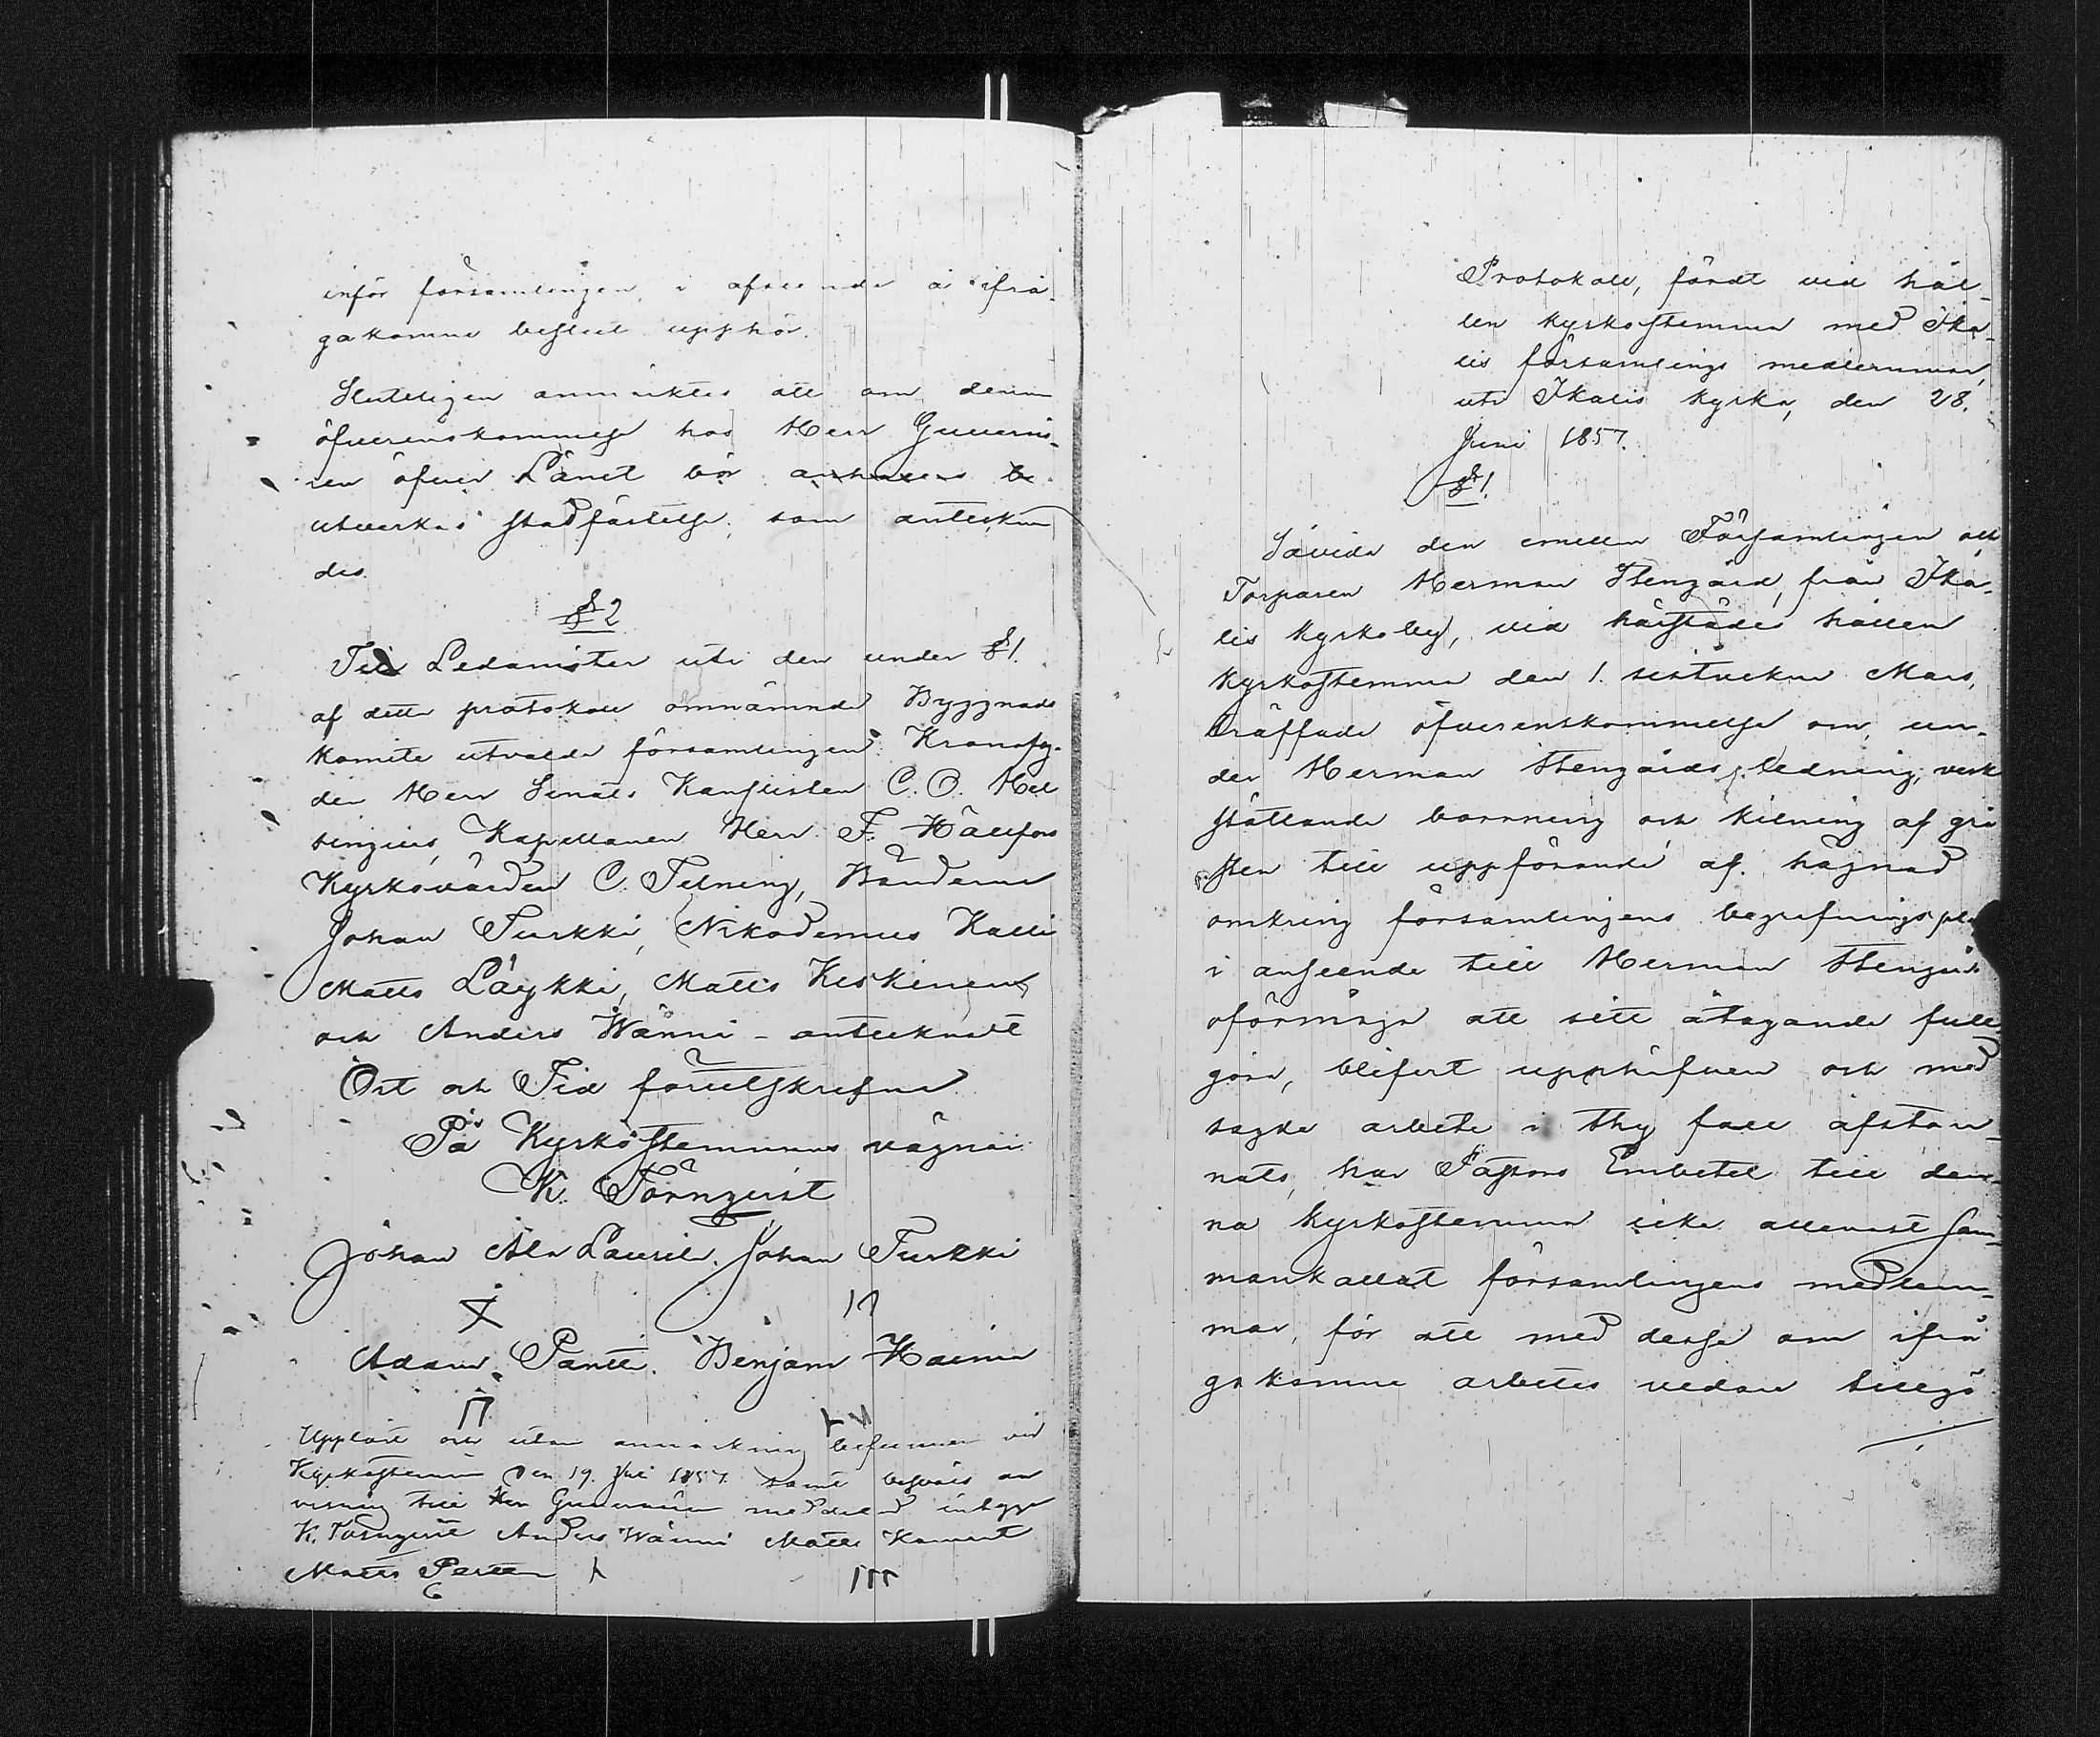 inför församlingen, i afseende å ifrå-
gakomne beslut upphör.
Slutligen anmärktes att om denna
öfverenskommelse hos Herr Guvernö-
ren öfver Länet bör anhållas be-
utverkas stadfästelse, som anteckna-
des.
§ 2
Till Ledamöter uti den under § 1.
af detta protokoll omnämnde Byggnads
komite utvalde församlingen: Kronofog-
den Herr Senats Kanslisten C. O. Hel
singius, Kapellanen Herr F. Hällfors
Kyrkovärden C. Telning, Bönderne
Johan Turkki, Nikodemus Kalli
Matts Läykki, Matts Keskinen,
och Anders Wänni - antecknadt
Ort och Tid förutskrefne
På Kyrkostemmans vägnar:
K. Törnqvist
Johan Ala Laurila. Johan Turkki
Adam Pantti. Benjam
Uppläst och utan anmärkning befunnen vid
Kyrkostemma den 19. Juli 1857. samt besvärs an
visning till Herr Guvernören meddelad
K. Törnqvist Anders Wänni Matts
Matts
Protokoll, fördt vid hål-
len kyrkostemma med Ika-
lis församlings medlemmar,
uti Ikalis kyrka, den 28.
Juni 1857.
§ 1.
Såvida den emellan Församlingen och
Torparen Herman Stengård, från Ika-
lis Kyrkoby, vid härstädes hållen
kyrkostemma den 1. sistvekne Mars,
träffade öfverenskommelse om, un-
der Herman Stengårds ledning, verk
ställande borrning och kilning af grå
sten till uppförande af hägnad
omkring församlingens begrafningspla
i anseende till Herman Stengårds
oförmåga att sitt åtagande full
göra, blifvit upphäfven och med
sagde arbete i thy fall afstan-
nats, har Pastors Embetet till den-
na kyrkostemma icke allenast sam-
mankallat församlingens medlem-
mar, för att med desse om ifrå
gakomne arbetes vidare tillgö